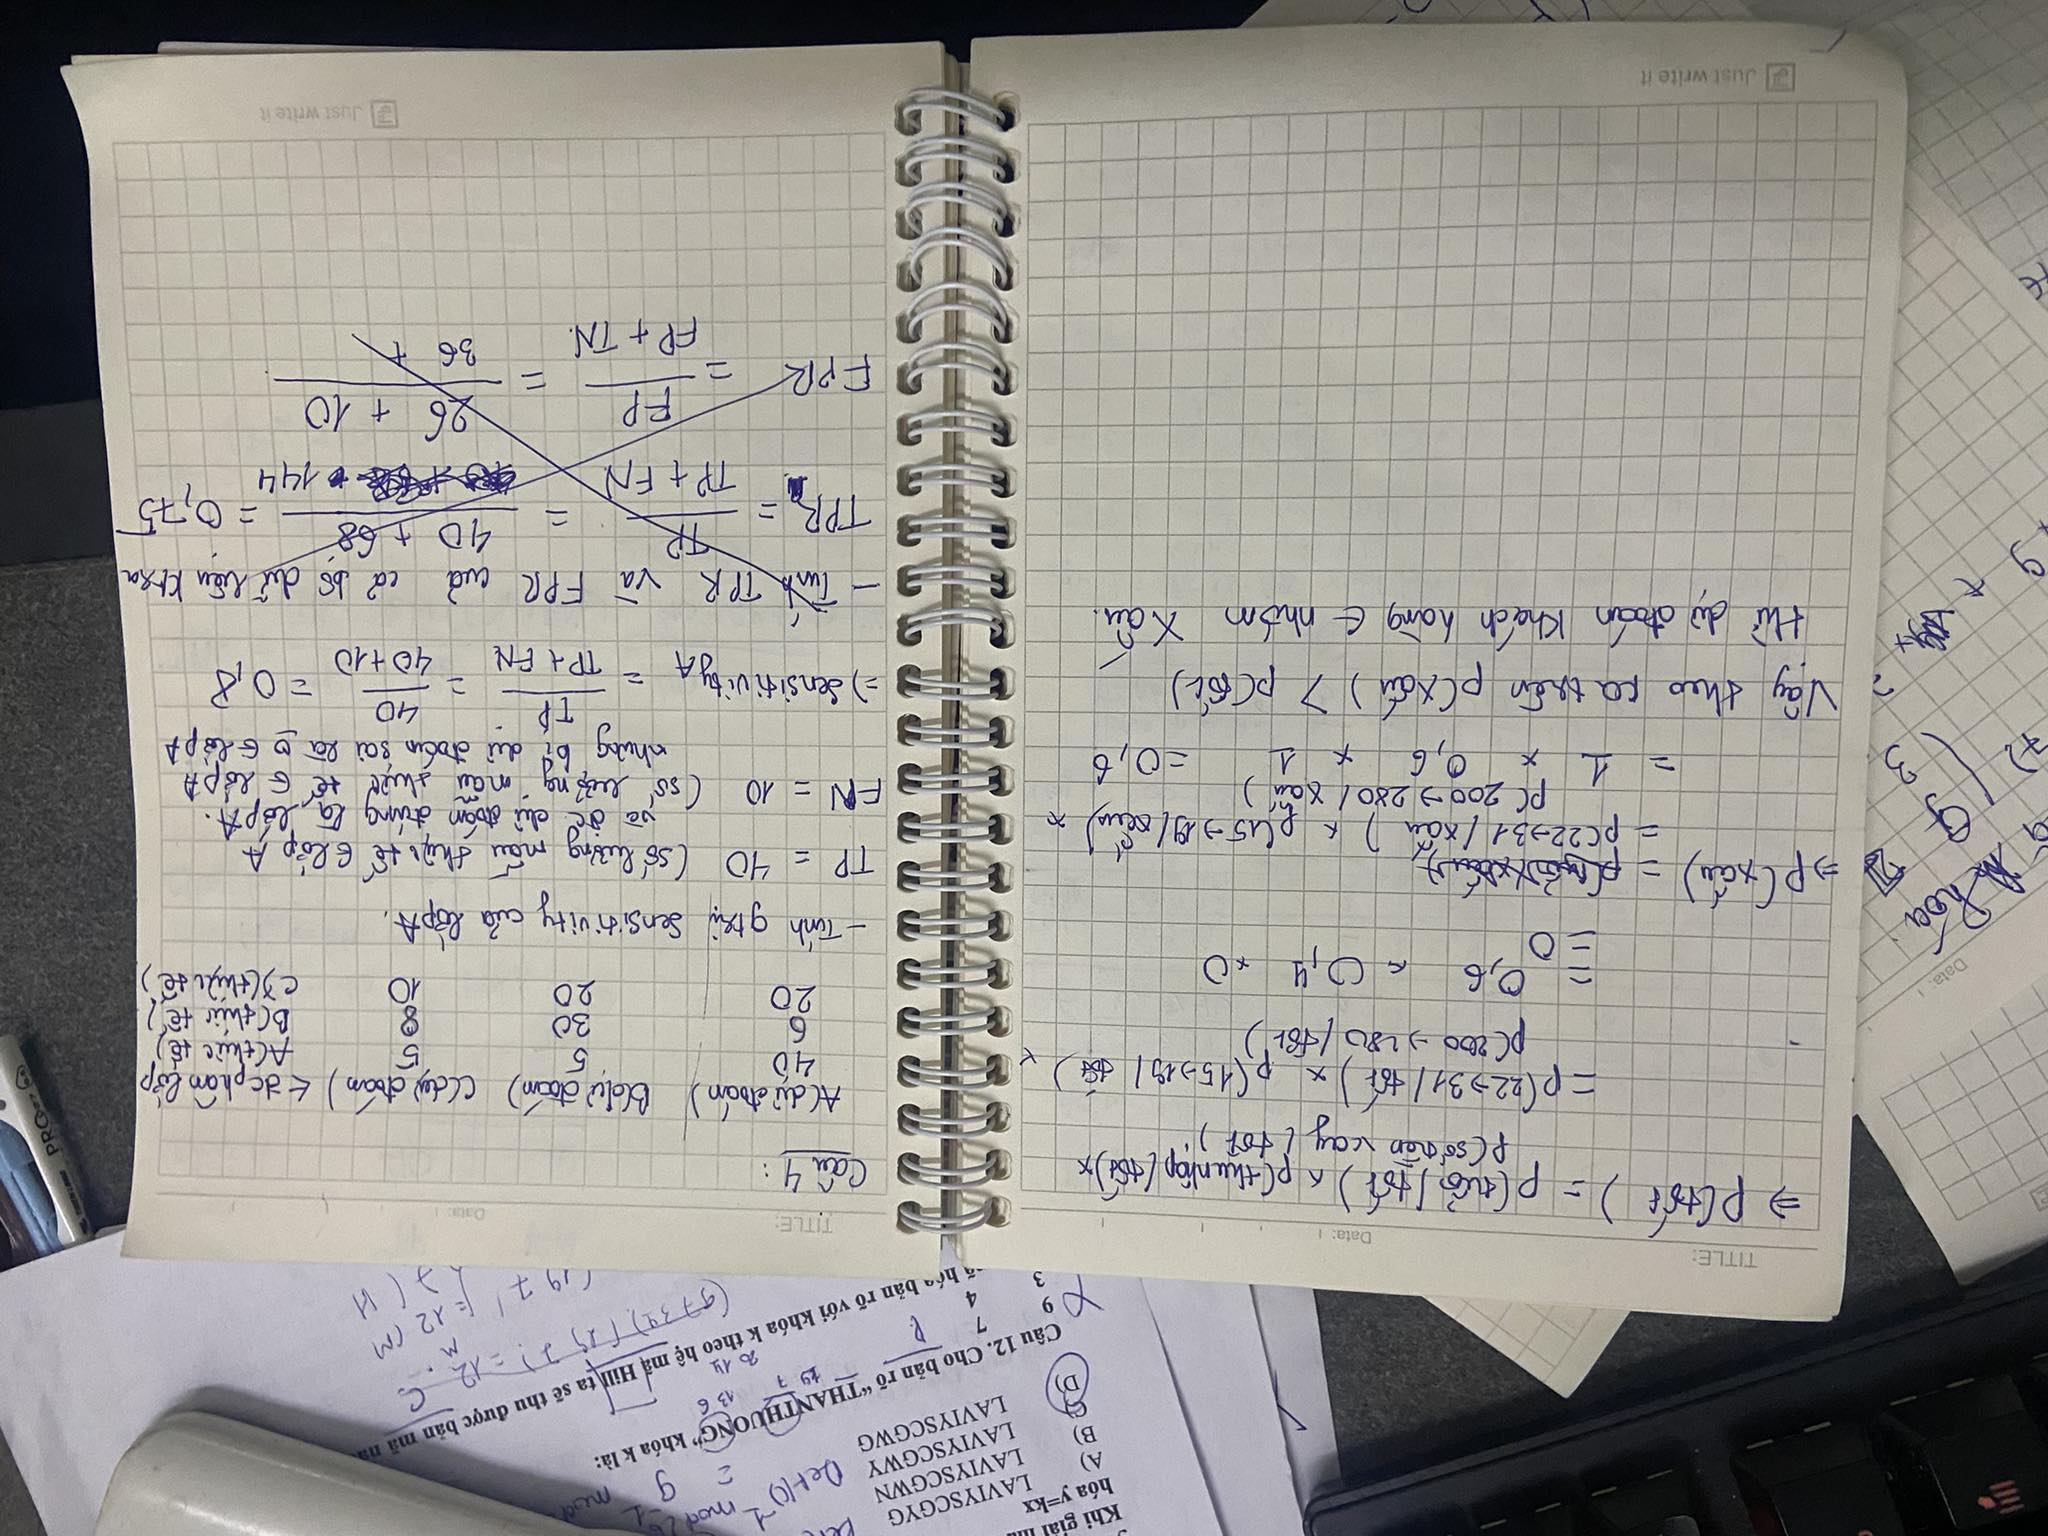 Khi giải
hóa y=kx
A) LAVIYSCGYG
B) LAVIYSCGWN
C) LAVIYSCGWY
D) LAVIYSCGWG
Det(
= 9⁻¹ mod
Câu 12. Cho bản rõ “THANTHUONG” khóa k là:
19 7 13 6
20 14
9 7
3 4
hóa bản rõ với khóa k theo hệ mã Hill ta sẽ thu được bản mã
P.
C
= 12
M
(19 7
= 12 (M
7 ( H
TITLE:
Data:
⇒ P(tốt) = P(tuổi/tốt) × P(thu nhập/tốt) ×
P(số tiền vay/tốt)
= P(22→31/tốt) × P(15→19/tốt) ×
P(200→280/tốt)
= 0,6 × 0,4 × 0
= 0
⇒ P(xấu) =
= P(22→31/xấu) × P(15→19/xấu) ×
P(200→280/xấu)
= 1 × 0,6 × 1 = 0,6
Vậy theo ca trên P(xấu) > P(tốt)
thì dự đoán khách hàng ∈ nhóm Xấu.
Just write it
TITLE:
Data:
Câu 4:
A(dự đoán) B(dự đoán) C(dự đoán) < đc phân lớp
40 5 5 A(thực tế)
6 30 8 B(thực tế)
20 20 10 C(thực tế)
- Tính gtrị Sensitivity của lớp A.
TP = 40 (số lượng mẫu thực tế ∈ lớp A
và đc dự đoán đúng là lớp A.
FN = 10 (số lượng mẫu thực tế ∈ lớp A
nhưng bị dự đoán sai là o ∈ lớp A
⇒ Sensitivity A = TP / (TP + FN) = 40 / (40+10) = 0,8
- Tính TPR và FPR của cả bộ dữ liệu ktra
TPR = TP / (TP + FN) = (40 + 68) / 144 = 0,75
FPR = FP / (FP + TN) = (26 + 10) / (36 +
Just write it
Data:
hoá
9
3